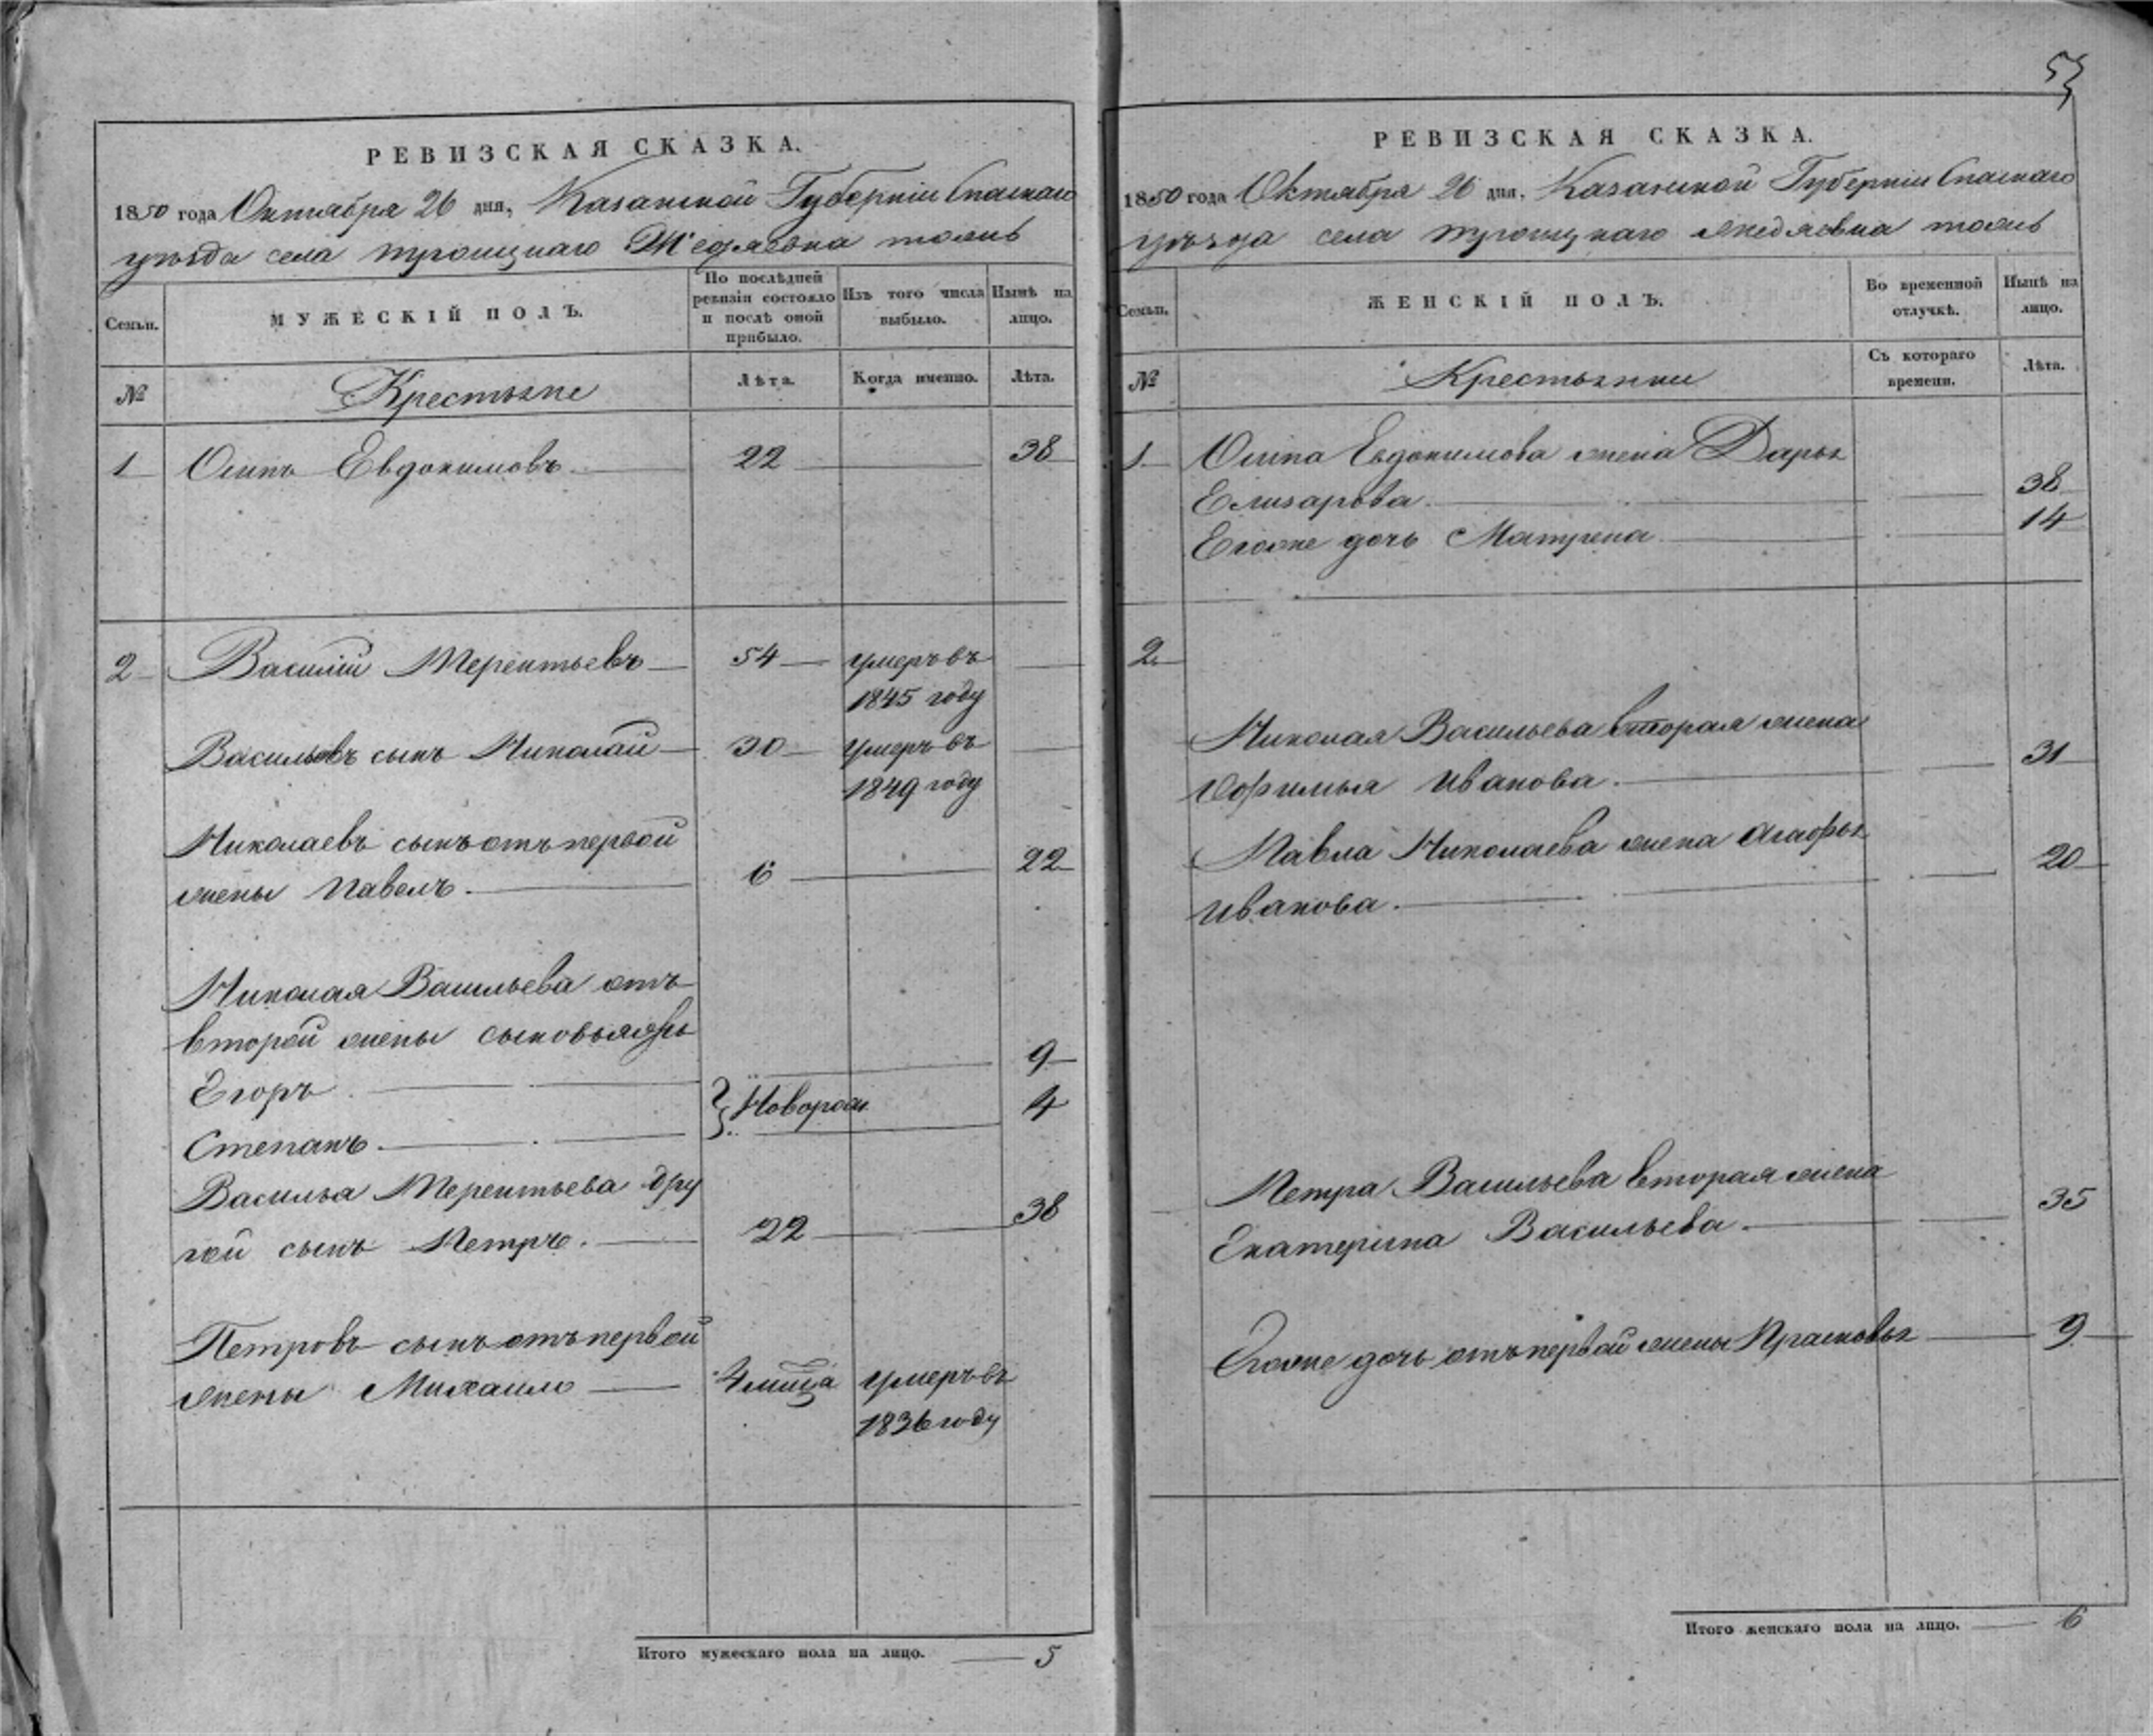 РЕВИЗСКАЯ СКАЗКА.
1850 года Октября 26 дня, Казанской Губернiи Спаскаго
уѣзда села Троицкаго Жедяевка тожъ
Семьи.
МУЖЕСКIЙ ПОЛЪ.
По послѣдней ревизiи состояло и послѣ оной прибыло.
Изъ того числа выбыло.
Нынѣ на лицо.
№
Крестьяне
Лѣта.
Когда именно.
Лѣта.
1 Осипъ Евдокимовъ 22 38
2 Василiй Терентьевъ 54 умеръ въ
1845 году
Васильевъ сынъ Николай 30 умеръ въ
1849 году
Николаевъ сынъ отъ первой
жены Павелъ. 6 22
Николая Васильева отъ
второй жены сыновья
Егоръ 9
Новорож
Степанъ. 4
Василья Терентьева дру
гой сынъ Петръ. 22 38
Петровъ сынъ отъ первой
жены Михаило 4 мѣца умеръ въ
1836 году
Итого мужескаго пола на лицо. 5
РЕВИЗСКАЯ СКАЗКА.
1850 года Октября 26 дня, Казанской Губернiи Спаскаго
уѣзда села Троицкаго Жедяевка тожъ
Семьи.
ЖЕНСКIЙ ПОЛЪ.
Во временной отлучкѣ.
Нынѣ на лицо.
№
Крестьянки
Съ котораго времени.
Лѣта.
1 Осипа Евдокимова жена Дарья
Елизарьва. 38
Егоже дочь Матрена 14
2
Николая Васильева вторая жена
Софимья Иванова. 31
Павла Николаева жена Агафья
Иванова. 20
Петра Васильева вторая жена
Екатерина Васильева. 35
Егоже дочь отъ первой жены Прасковья 9
Итого женскаго пола на лицо. 6